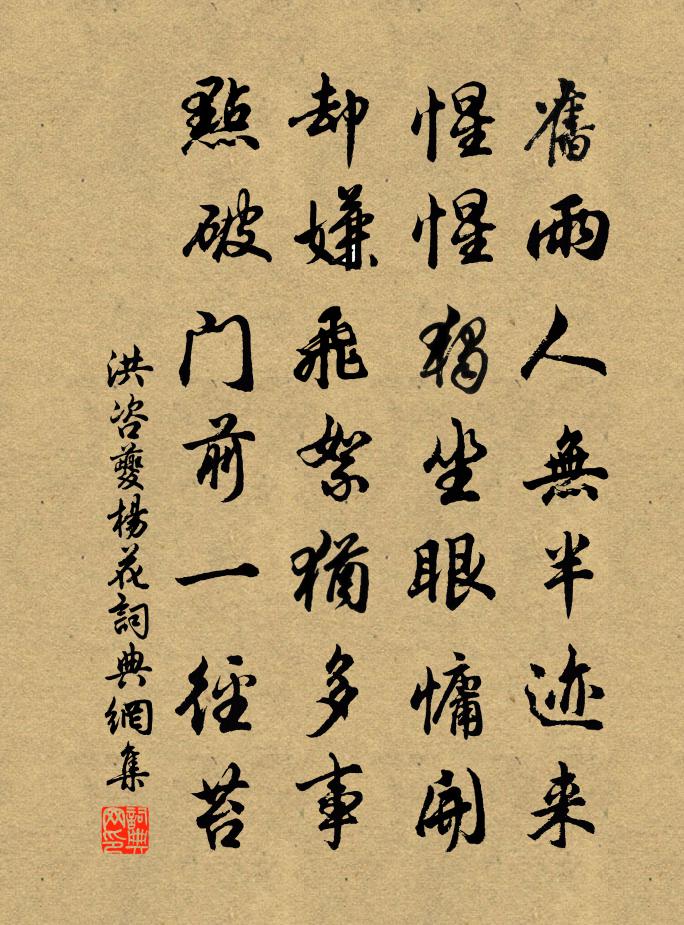 舊雨人無半迹来
惺惺獨坐眼慵開
却嫌飛絮猶多事
點破門前一徑苔
洪咨夔楊花詞典網集
詞典网印